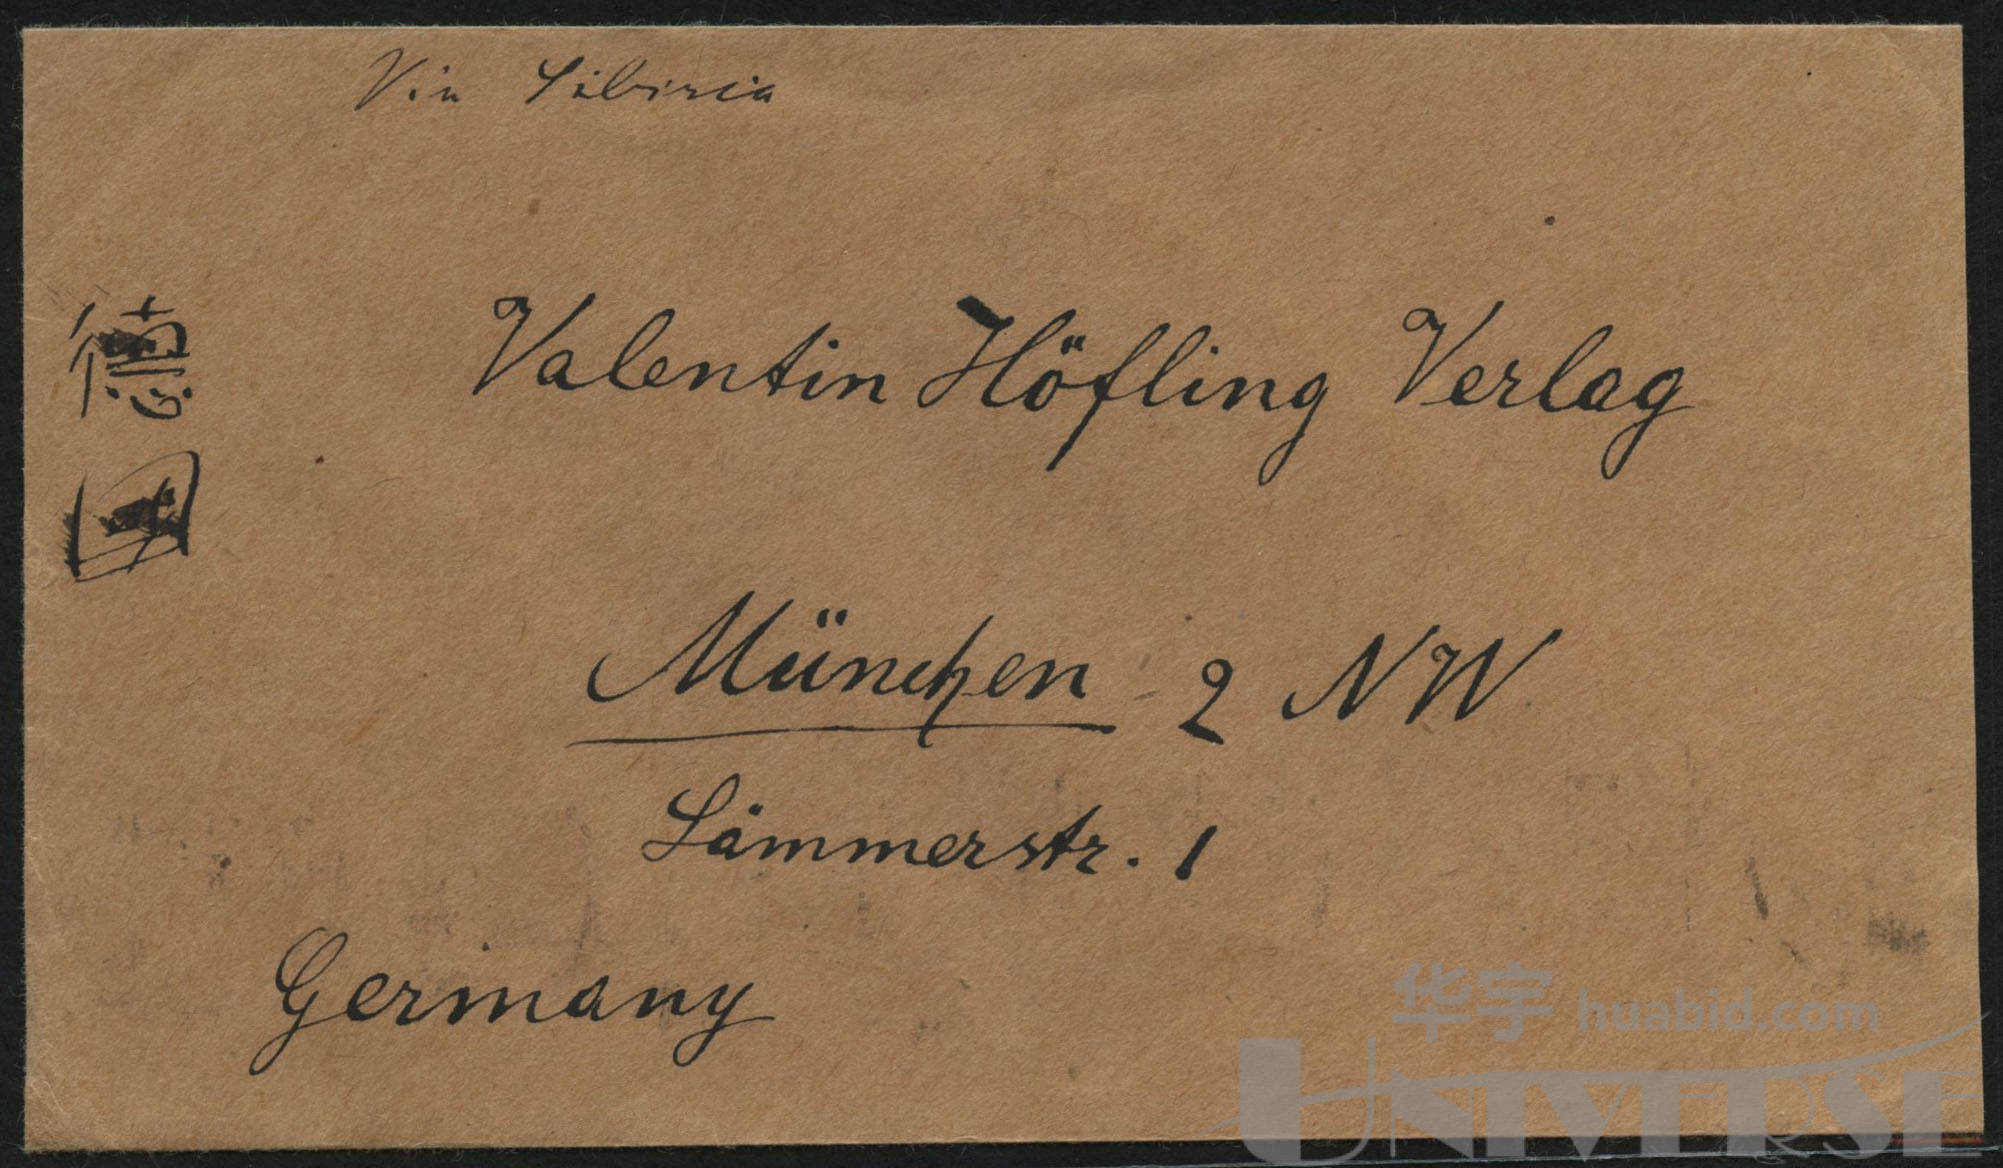 Via Sibiria
德國
Valentin Höfling Verlag
München 2 NW
Lämmerstr. 1
Germany
华宇 huabid.com
UNIVERSE